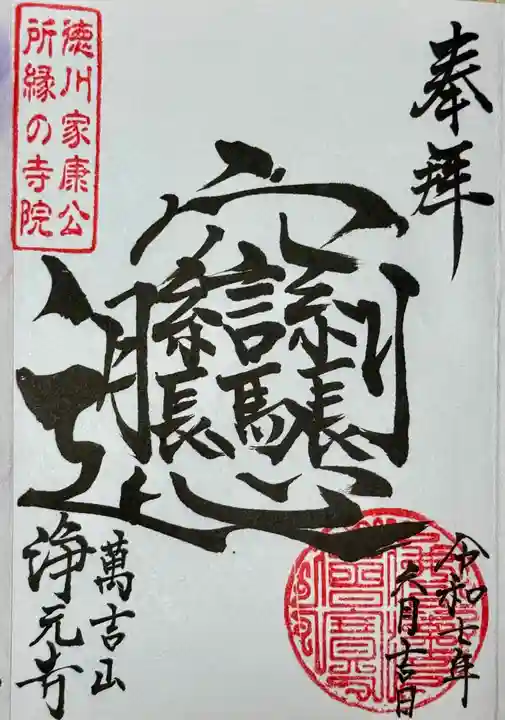 奉拜
令和七年
六月吉日
𰻞
徳川家康公
所縁の寺院
萬吉山
浄元寺